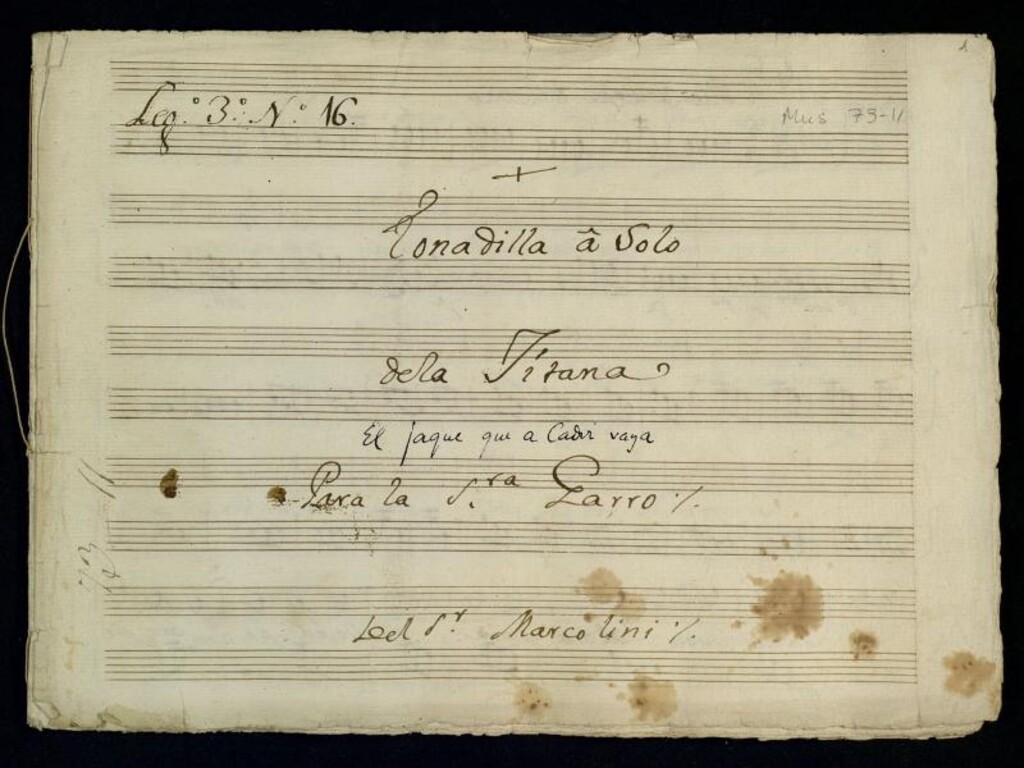 Leg.º 3.º N.º 16.
Mus 73-11
1
+
Tonadilla â Solo
dela Jitana
El jaque que a Cadiz vaya
Para la S.ra Garro %.
Del S.r Marcolini %.